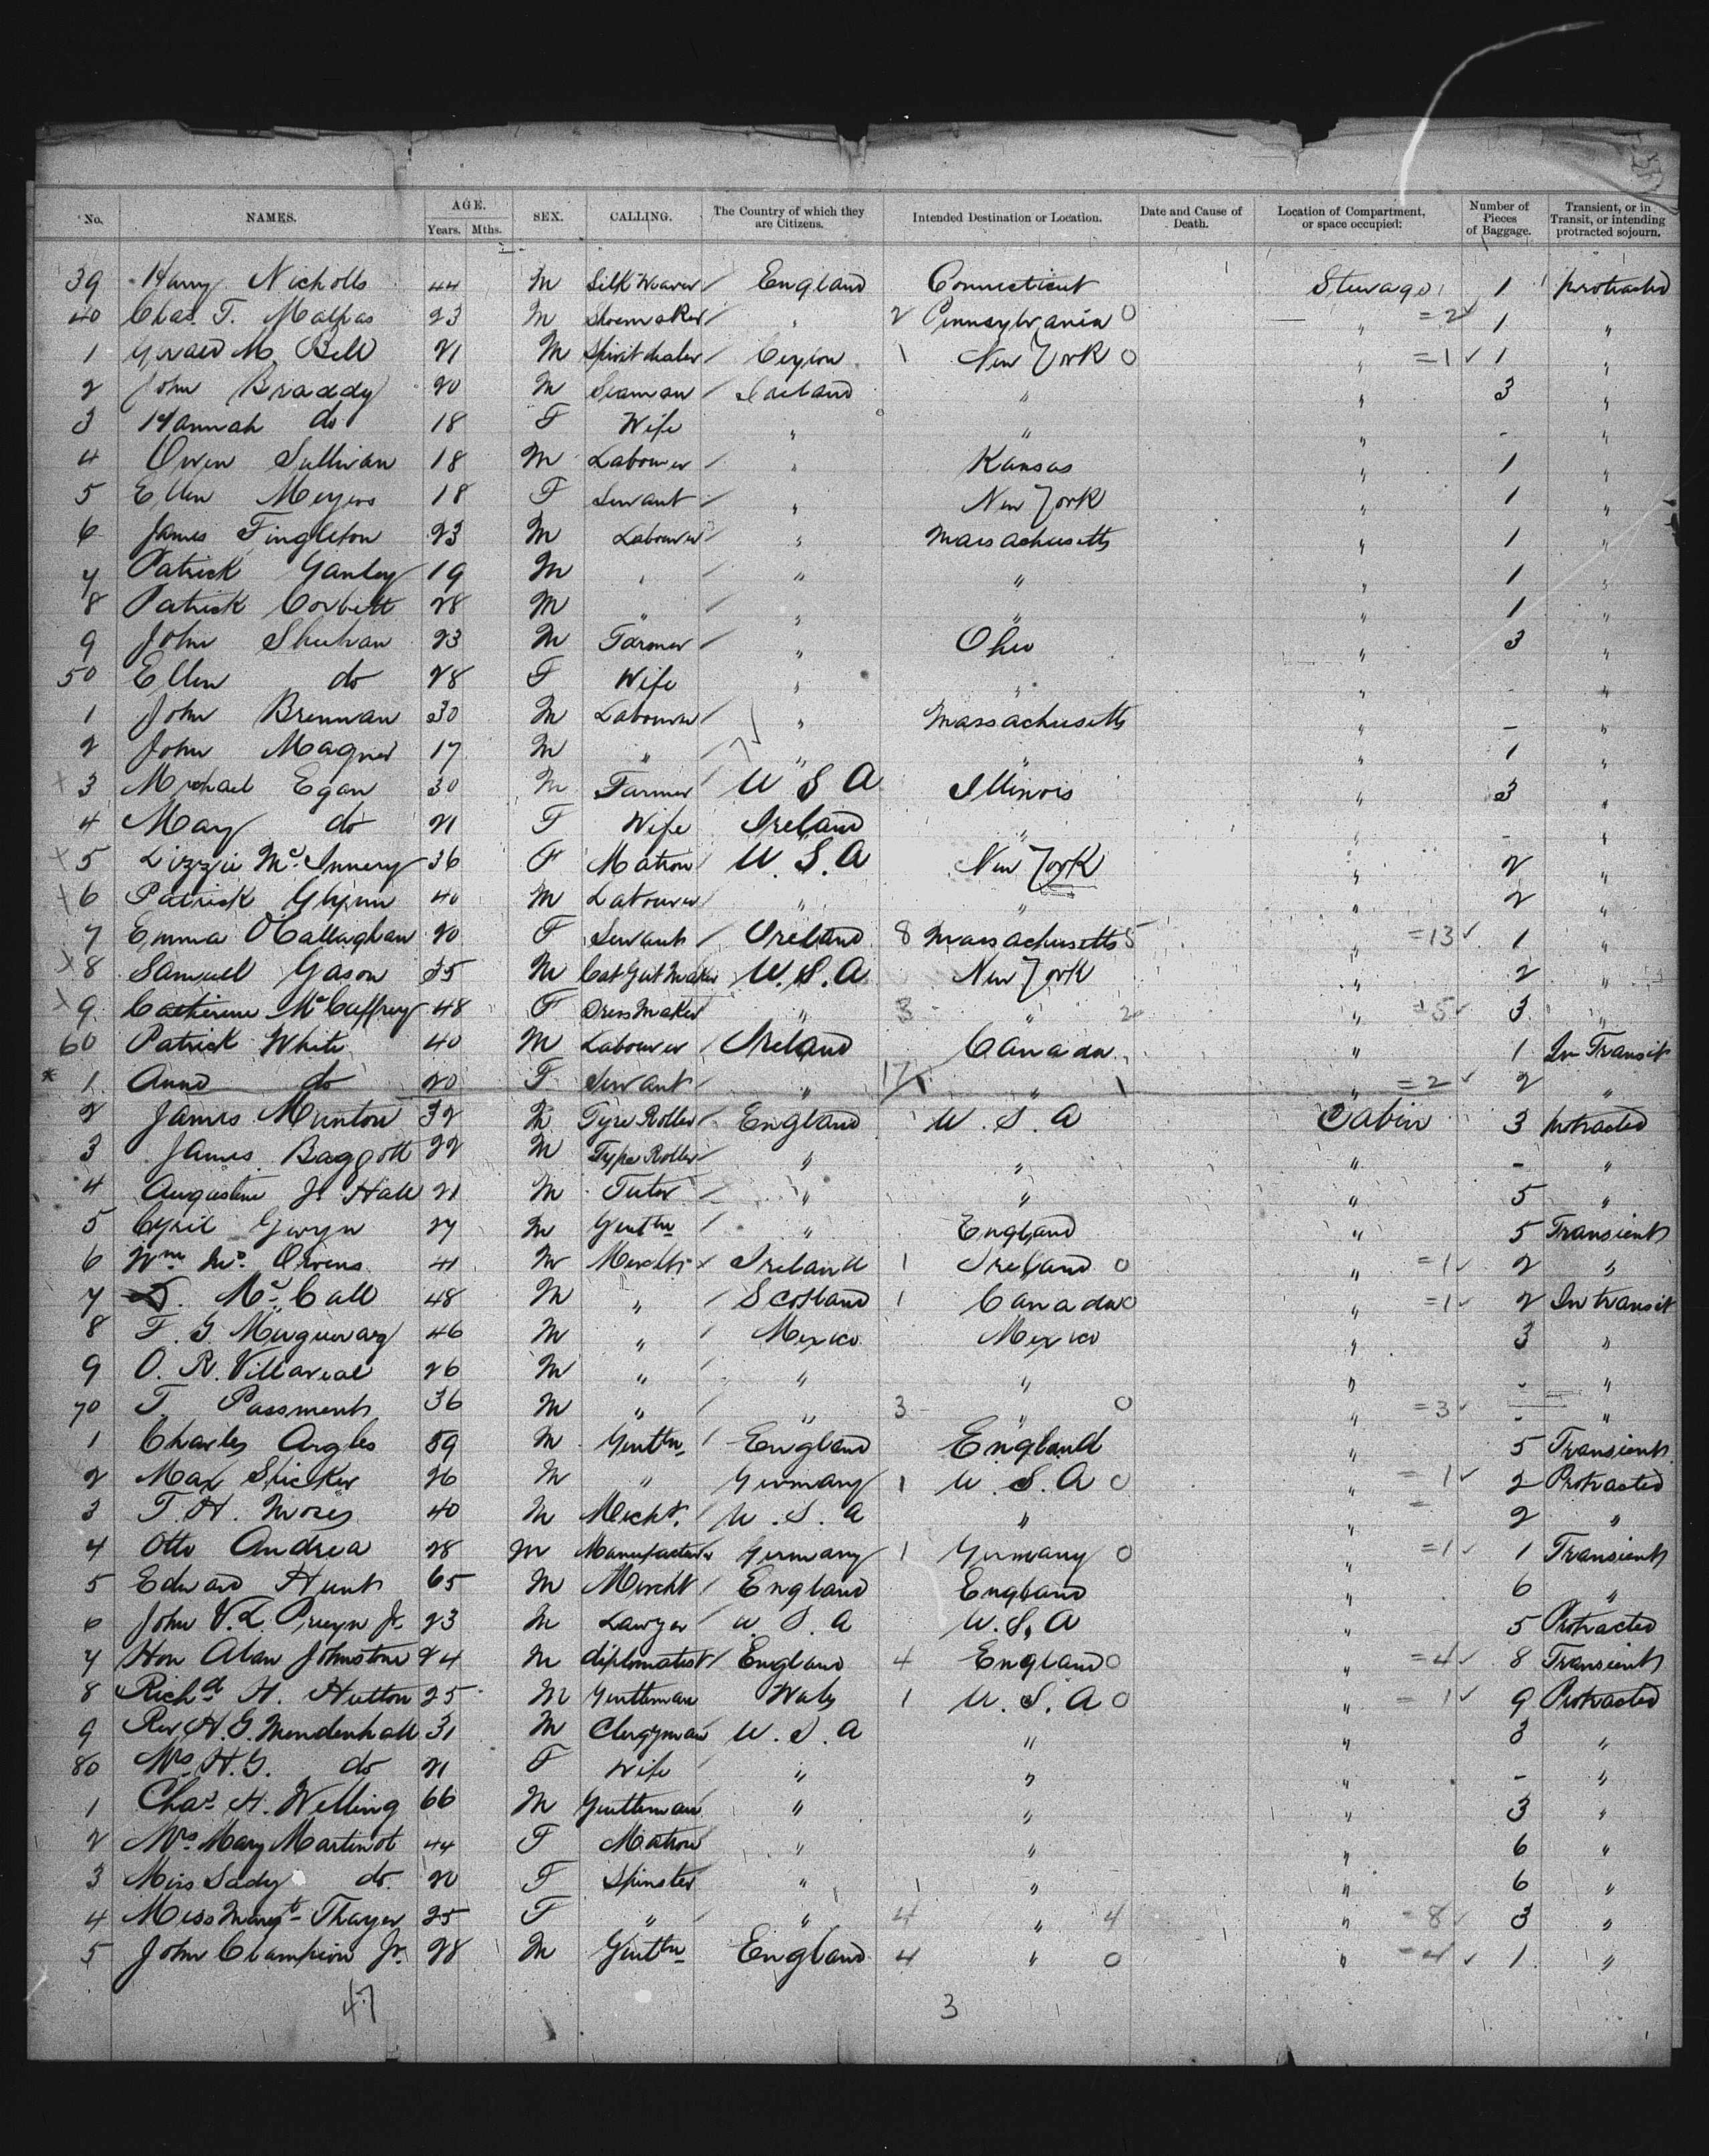 No. NAMES. AGE. Years. Mths. SEX. CALLING. The Country of which they are Citizens. Intended Destination or Location. Date and Cause of Death. Location of Compartment, or space occupied: Number of Pieces of Baggage. Transient, or in Transit, or intending protracted sojourn.
39 Harry Nicholls 44 M Silk Weaver / England Connecticut Steerage 1 protracted
40 Chas. T. Malpas 23 M Shoemaker / " 2 Pennsylvania 0 " =2✓ 1 "
1 Gerald M. Bell 21 M Spirit dealer / Ceylon 1 New York 0 " =1✓ 1 "
2 John Braddy 20 M Seaman / Ireland " " 3 "
3 Hannah do 18 F Wife " " " - "
4 Owen Sullivan 18 M Labourer / " Kansas " 1 "
5 Ellen Meyers 18 F Servant / " New York " 1 "
6 James Tingleton 23 M Labourer " Massachusetts " 1 "
7 Patrick Ganley 19 M " / " " " 1 "
8 Patrick Corbett 28 M " / " " " 1 "
9 John Sheehan 23 M Farmer / " Ohio " 3 "
50 Ellen do 28 F Wife " " " - "
1 John Brennan 30 M Labourer / " Massachusetts " - "
2 John Magner 17 M " / " " " 1 "
x 3 Michael Egan 30 M Farmer / U S A Illinois " 3 "
4 Mary do 21 F Wife Ireland " " - "
x 5 Lizzie McInnery 36 F Matron U. S. A New York " 2 "
x 6 Patrick Glynn 40 M Labourer " " " 2 "
7 Emma OCallaghan 20 F Servant / Ireland 8 Massachusetts 5 " =13✓ 1 "
x 8 Samuel Gason 35 M Cat Gut Maker U. S. A New York " 2 "
x 9 Catherine McCaffrey 48 F Dress Maker " 3 " 2 " =5✓ 3 "
60 Patrick White 40 M Labourer / Ireland Canada " 1 In Transit
* 1 Anne do 20 F Servant / " " 1 " =2✓ 2 "
2 James Munton 32 M Tyre Roller England U. S. A Cabin 3 protracted
3 James Baggott 22 M Type Roller / " " " - "
4 Augustine J. Hall 21 M Tutor / " " " 5 "
5 Cyril Gwyn 27 M Gentln / " England " 5 Transient
6 Wm Mc. Owens 41 M Mercht Ireland 1 Ireland 0 " =1✓ 2 "
7 McCall 48 M " / Scotland 1 Canada 0 " =1✓ 2 In transit
8 F. G 46 M " / Mexico Mexico " 3 "
9 O. R. Villareal 26 M " / " " " - "
70 T Passment 36 M " / " 3 " 0 " =3✓ - "
1 Charles Argles 59 M Gentln / England England " 5 Transient
2 Max Spicker 26 M " Germany 1 U. S. A 0 " =1✓ 2 Protracted
3 T. H. Moses 40 M Mercht. U. S. A " " = 2 "
4 Otto Andrea 28 M Manufacturer Germany 1 Germany 0 " =1✓ 1 Transient
5 Edward Hunt 65 M Mercht / England England " 6 "
6 John V. L. Pruyn Jr. 23 M Lawyer U. S. A U. S. A " 5 Protracted
7 Hon Alan Johnstone 24 M diplomatist / England 4 England 0 " =4✓ 8 Transient
8 Richd H. Hutton 25 M Gentleman Italy 1 U. S. A 0 " =1✓ 9 Protracted
9 Rev H. G. Mendenhall 31 M Clergyman U. S. A " " 3 "
80 Mrs H. G. do 21 F Wife " " " - "
1 Chas H. Welling 66 M Gentleman " " " 3 "
2 Mrs Mary Martinot 44 F Matron " " " 6 "
3 Miss Sady do. 20 F Spinster " " " 6 "
4 Miss Margt Thayer 25 F " " 4 " 4 " =8✓ 3 "
5 John Champion Jr. 28 M Gentln England 4 " 0 " =4✓ 1 "
47 3